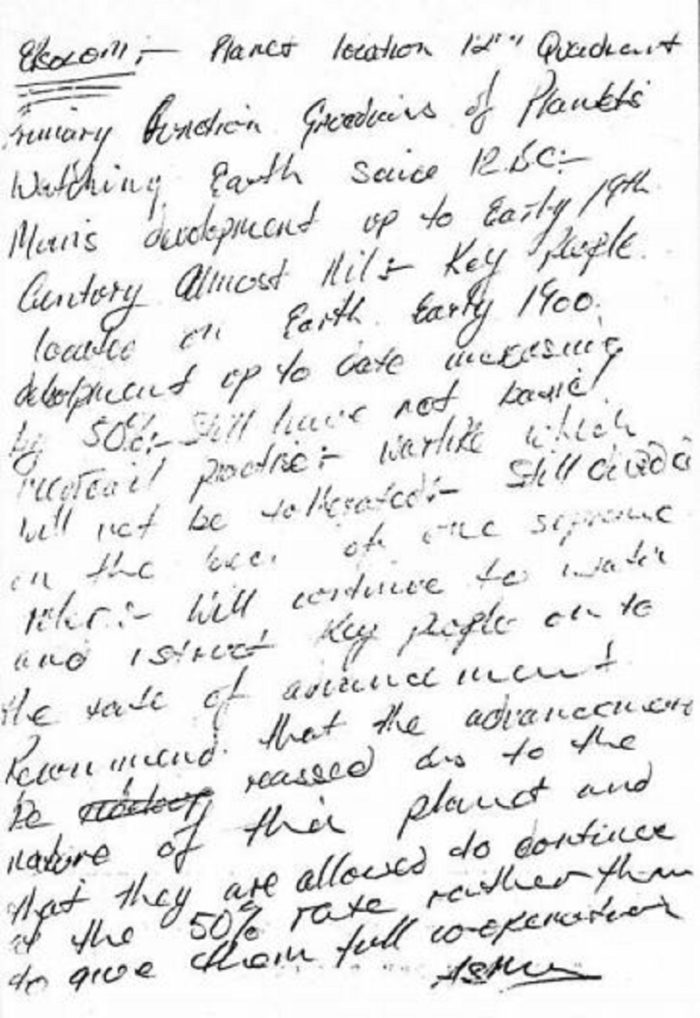 :- Planet location 12"" Quadrant
Primary Function Guardians of Planets
Watching Earth since 12.BC:-
Man's development up to Early 19th
Century Almost Nil:- Key people
located on Earth Early 1900.
development up to date increasing
by 50%:- Still have not
practise:- warlike which
will not be tollerated:- Still divided
on the of one supreme
ruler:- Will continue to watch
and istruct Key people on to
the rate of advancement
Recommend that the advancement
be reassed du to the
nature of this planet and
that they are allowed to continue
at the 50% rate rather than
to give them full co-operation